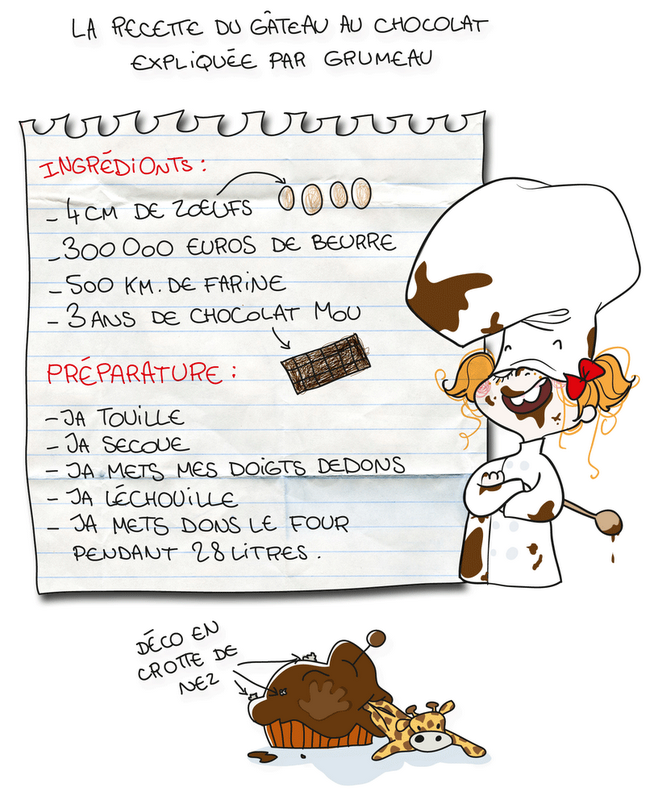 LA RECETTE DU GÂTEAU AU CHOCOLAT
EXPLIQUÉE PAR GRUMEAU
INGRÉDIONTS :
- 4 CM DE ZOEUFS
- 300 000 EUROS DE BEURRE
- 500 KM. DE FARINE
- 3 ANS DE CHOCOLAT MOU
PRÉPARATURE :
- JA TOUILLE
- JA SECOUE
- JA METS MES DOIGTS DEDONS
- JA LÉCHOUILLE
- JA METS DONS LE FOUR
PENDANT 28 LITRES.
DÉCO EN
CROTTE DE
NEZ